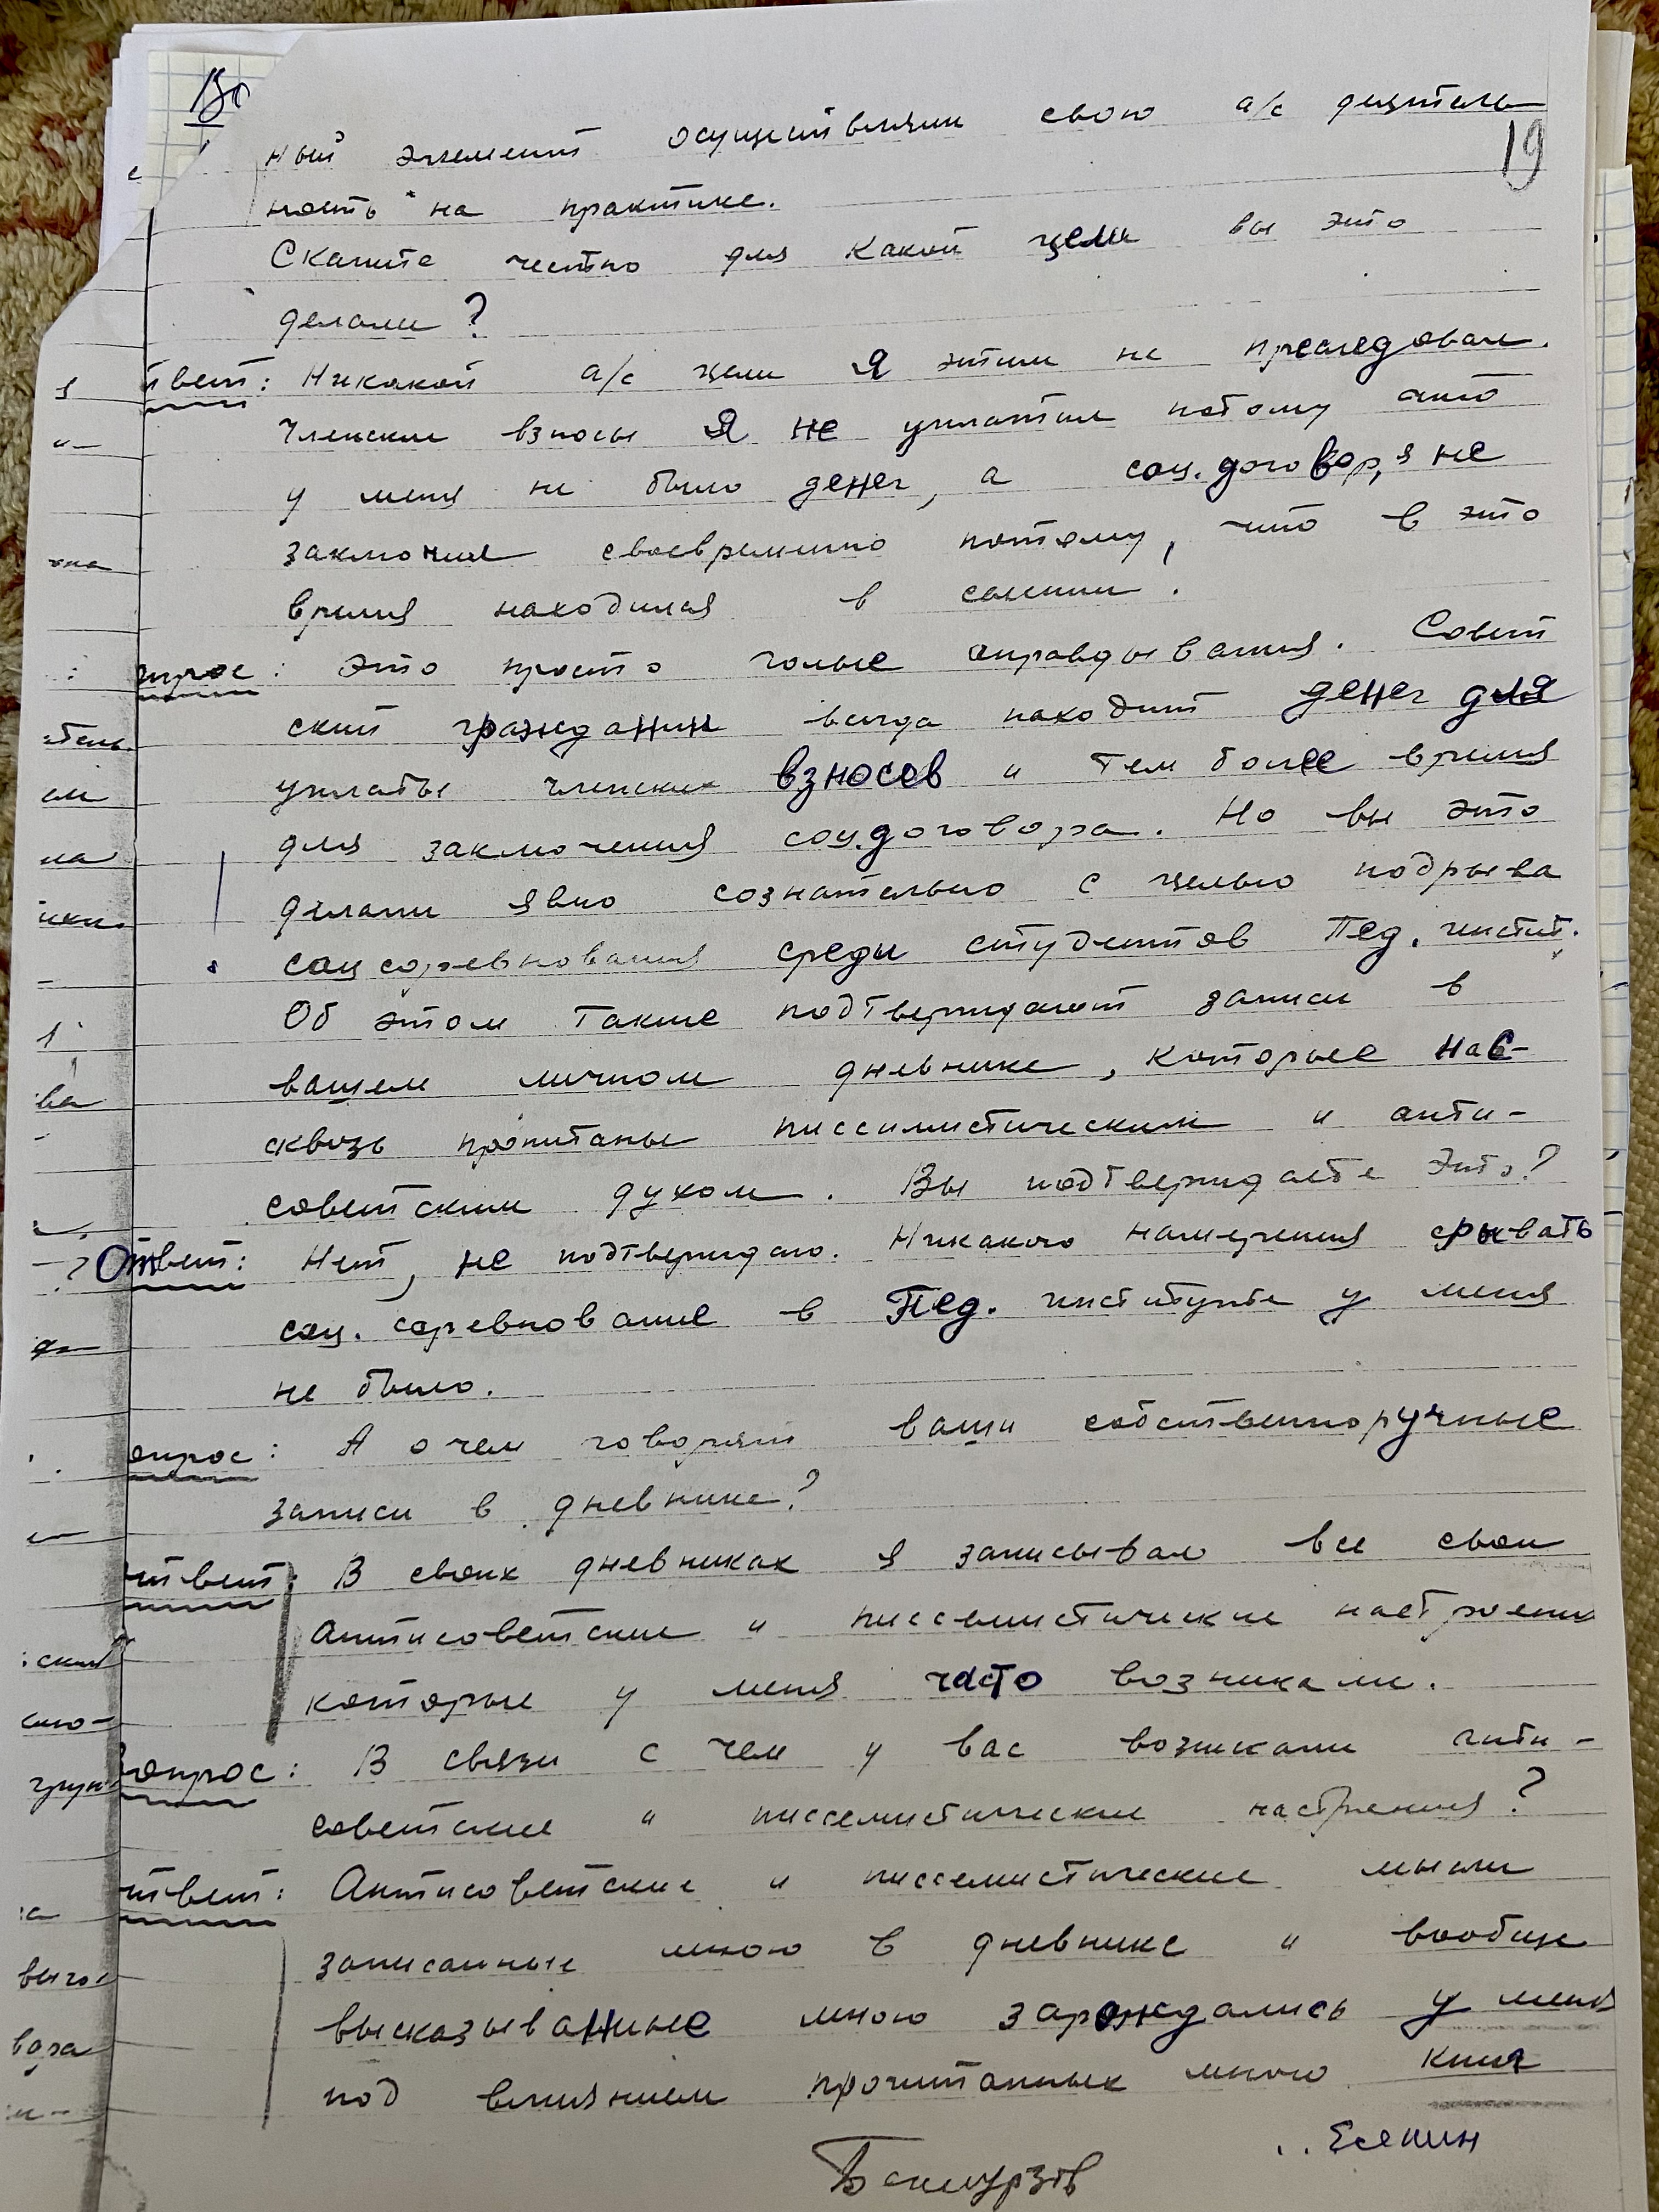 19
ный элемент осуществляли свою а/с деятель
ность на практике.
Скажите честно для какой цели вы это
делали?
твет: Никакой а/с цели я этим не преследовал.
Членские взносы я не уплатил потому что
у меня не было денег, а соц. договор, я не
заключил своевременно потому, что в это
время находился в
прос: Это просто голые оправдывания. Совет
ский гражданин всегда находит денег для
уплаты членских взносов и тем более время
для заключения соц.договора. Но вы это
делали явно сознательно с целью подрыва
соцсоревнования среди студентов Пед. инстит.
Об этом также подтверждают записи в
вашем личном дневнике, которые нас-
сквозь пропитаны писсимистическим и анти-
советским духом. Вы подтверждаете это?
Ответ: Нет, не подтверждаю. Никакого намерения срывать
соц. соревнование в Пед. институте у меня
не было.
опрос: А о чем говорят ваши собственноручные
записи в дневнике?
твет: В своих дневниках я записывал все свои
антисоветские и писсемистические настроения
которые у меня часто возникали.
вопрос: В связи с чем у вас возникали анти-
советские и писсемистические настроения?
твет: Антисоветские и писсемистические мысли
записанные мною в дневнике и вообще
высказыванные мною зарождались у меня
под влиянием прочитанных мною книг
Есенин